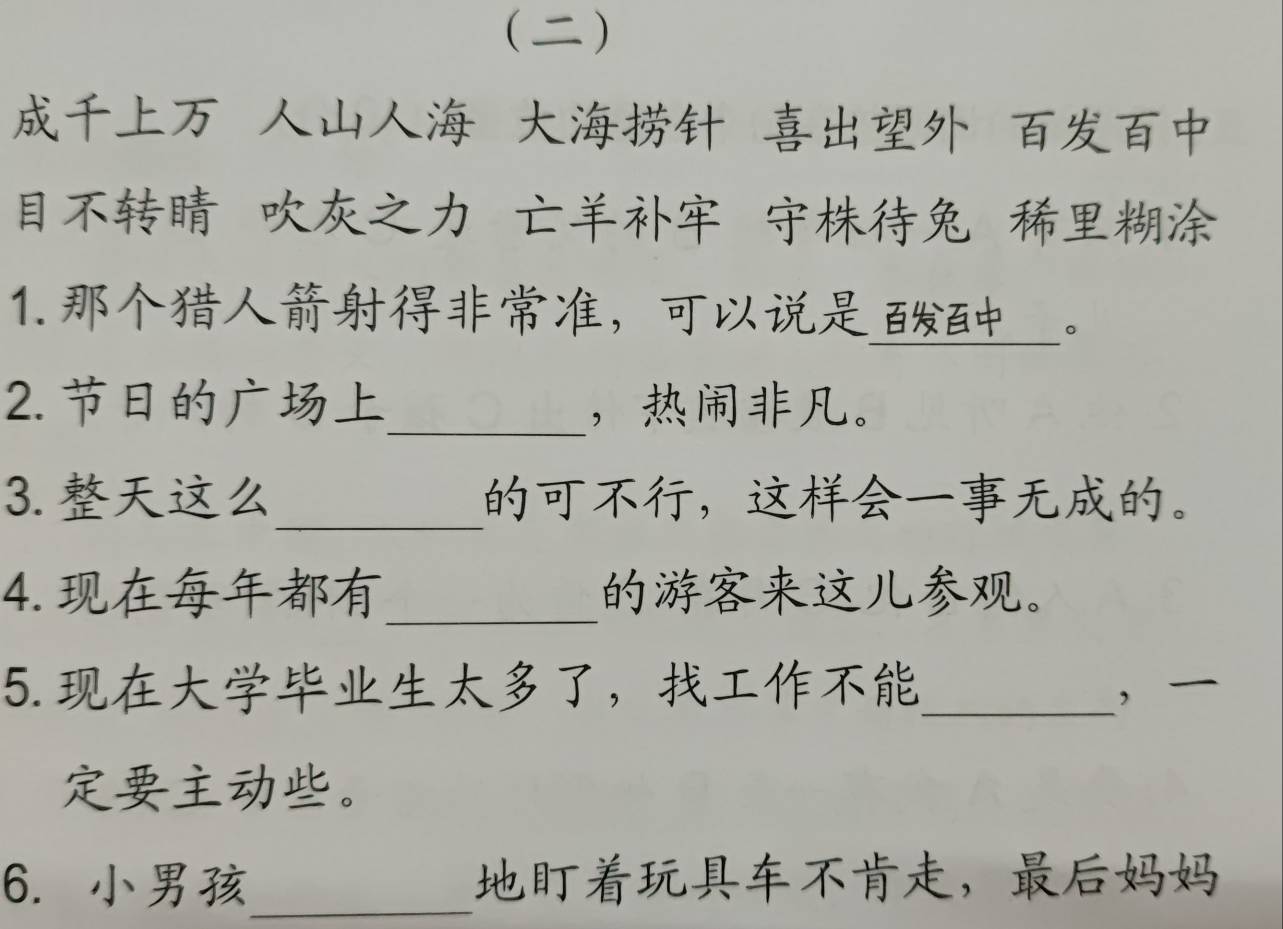 （二）
成千上万 人山人海 大海捞针 喜出望外 百发百中
目不转睛 吹灰之力 亡羊补牢 守株待兔 稀里糊涂
1. 那个猎人箭射得非常准，可以说是百发百中。
2. 节日的广场上________，热闹非凡。
3. 整天这么________的可不行，这样会一事无成的。
4. 现在每年都有________的游客来这儿参观。
5. 现在大学毕业生太多了，找工作不能________，一
定要主动些。
6. 小男孩________地盯着玩具车不肯走，最后妈妈